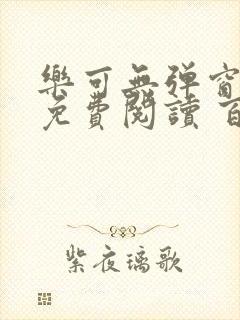 樂可無彈窗
免費閱讀 百
紫夜璃歌